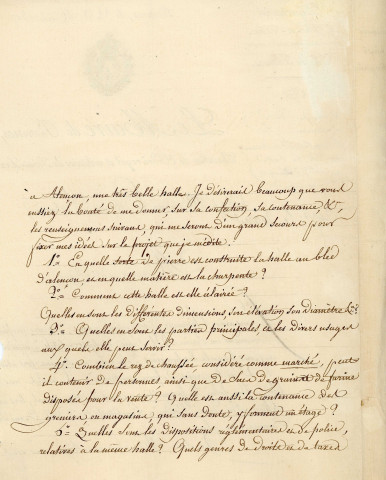 à Alençon, une très belle halle. Je désirerais beaucoup que vous
eussiez la bonté de me donner, sur sa confection, sa contenance, &c,
les renseignemens suivans, qui me seront d'un grand secours pour
fixer mes idées sur le projet que je médite.
1.° En quelle sorte de pierre est construite la halle au bled
d'alençon, et en quelle matière est la charpente ?
2.° Comment cette halle est elle éclairée ?
Quelles en sont les différentes dimensions, son élévation son diamètre &c ?
3.° Quelles en sont les parties principales et les divers usages
aux quels elle peut servir ?
4.° Combien le rez de chaussée considéré comme marché, peut
il contenir de personnes ainsi que de sacs de grains et de farine
disposés pour la vente ? Quelle est aussi la contenance des
greniers ou magasins, qui sans doute, y forment un étage ?
5.° Quelles sont les dispositions réglementaires et de police,
relatives à la même halle ? Quels genres de droits et de taxes